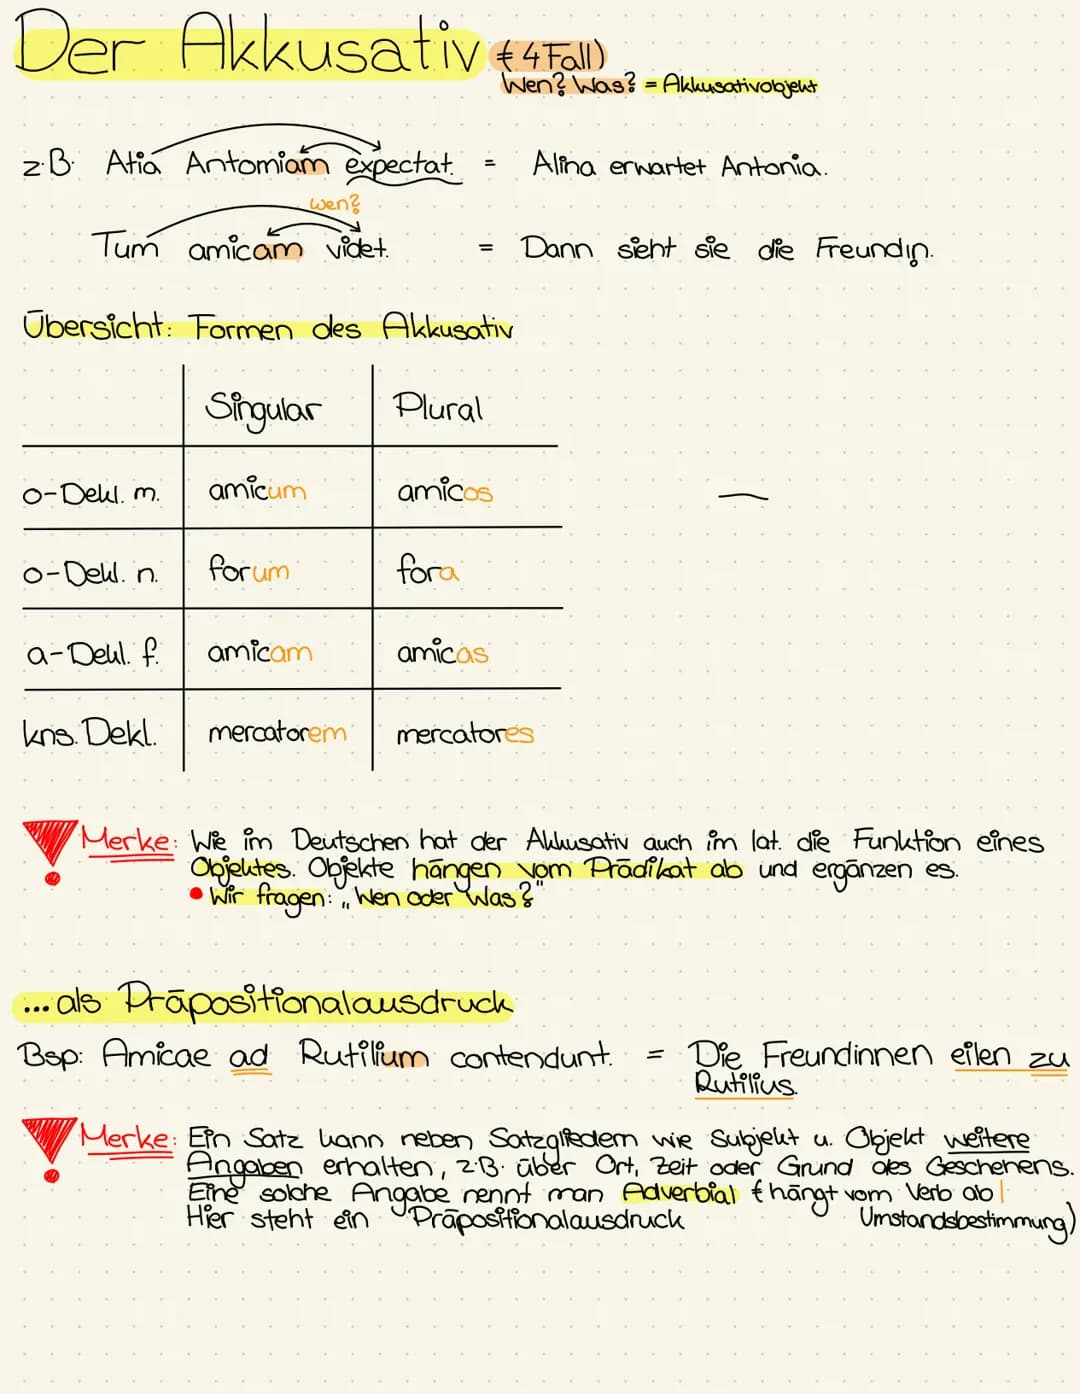 Der Akkusativ (4 Fall)
Wen? Was? = Akkusativobjekt
z.B. Atia Antomiam expectat. = Alina erwartet Antonia.
wen?
Tum amicam videt. = Dann sieht sie die Freundin.
Übersicht: Formen des Akkusativ
Singular Plural
o-Dekl. m. amicum amicos
o-Dekl. n. forum fora
a-Dekl. f. amicam amicas
kns. Dekl. mercatorem mercatores
Merke: Wie im Deutschen hat der Akkusativ auch im lat. die Funktion eines
Objektes. Objekte hängen vom Prädikat ab und ergänzen es.
• Wir fragen: „Wen oder Was?"
... als Präpositionalausdruck
Bsp: Amicae ad Rutilium contendunt. = Die Freundinnen eilen zu
Rutilius.
Merke: Ein Satz kann neben Satzgliedern wie Subjekt u. Objekt weitere
Angaben erhalten, z.B. über Ort, Zeit oder Grund des Geschehens.
Eine solche Angabe nennt man Adverbial (hängt vom Verb ab |
Hier steht ein Präpositionalausdruck Umstandsbestimmung)